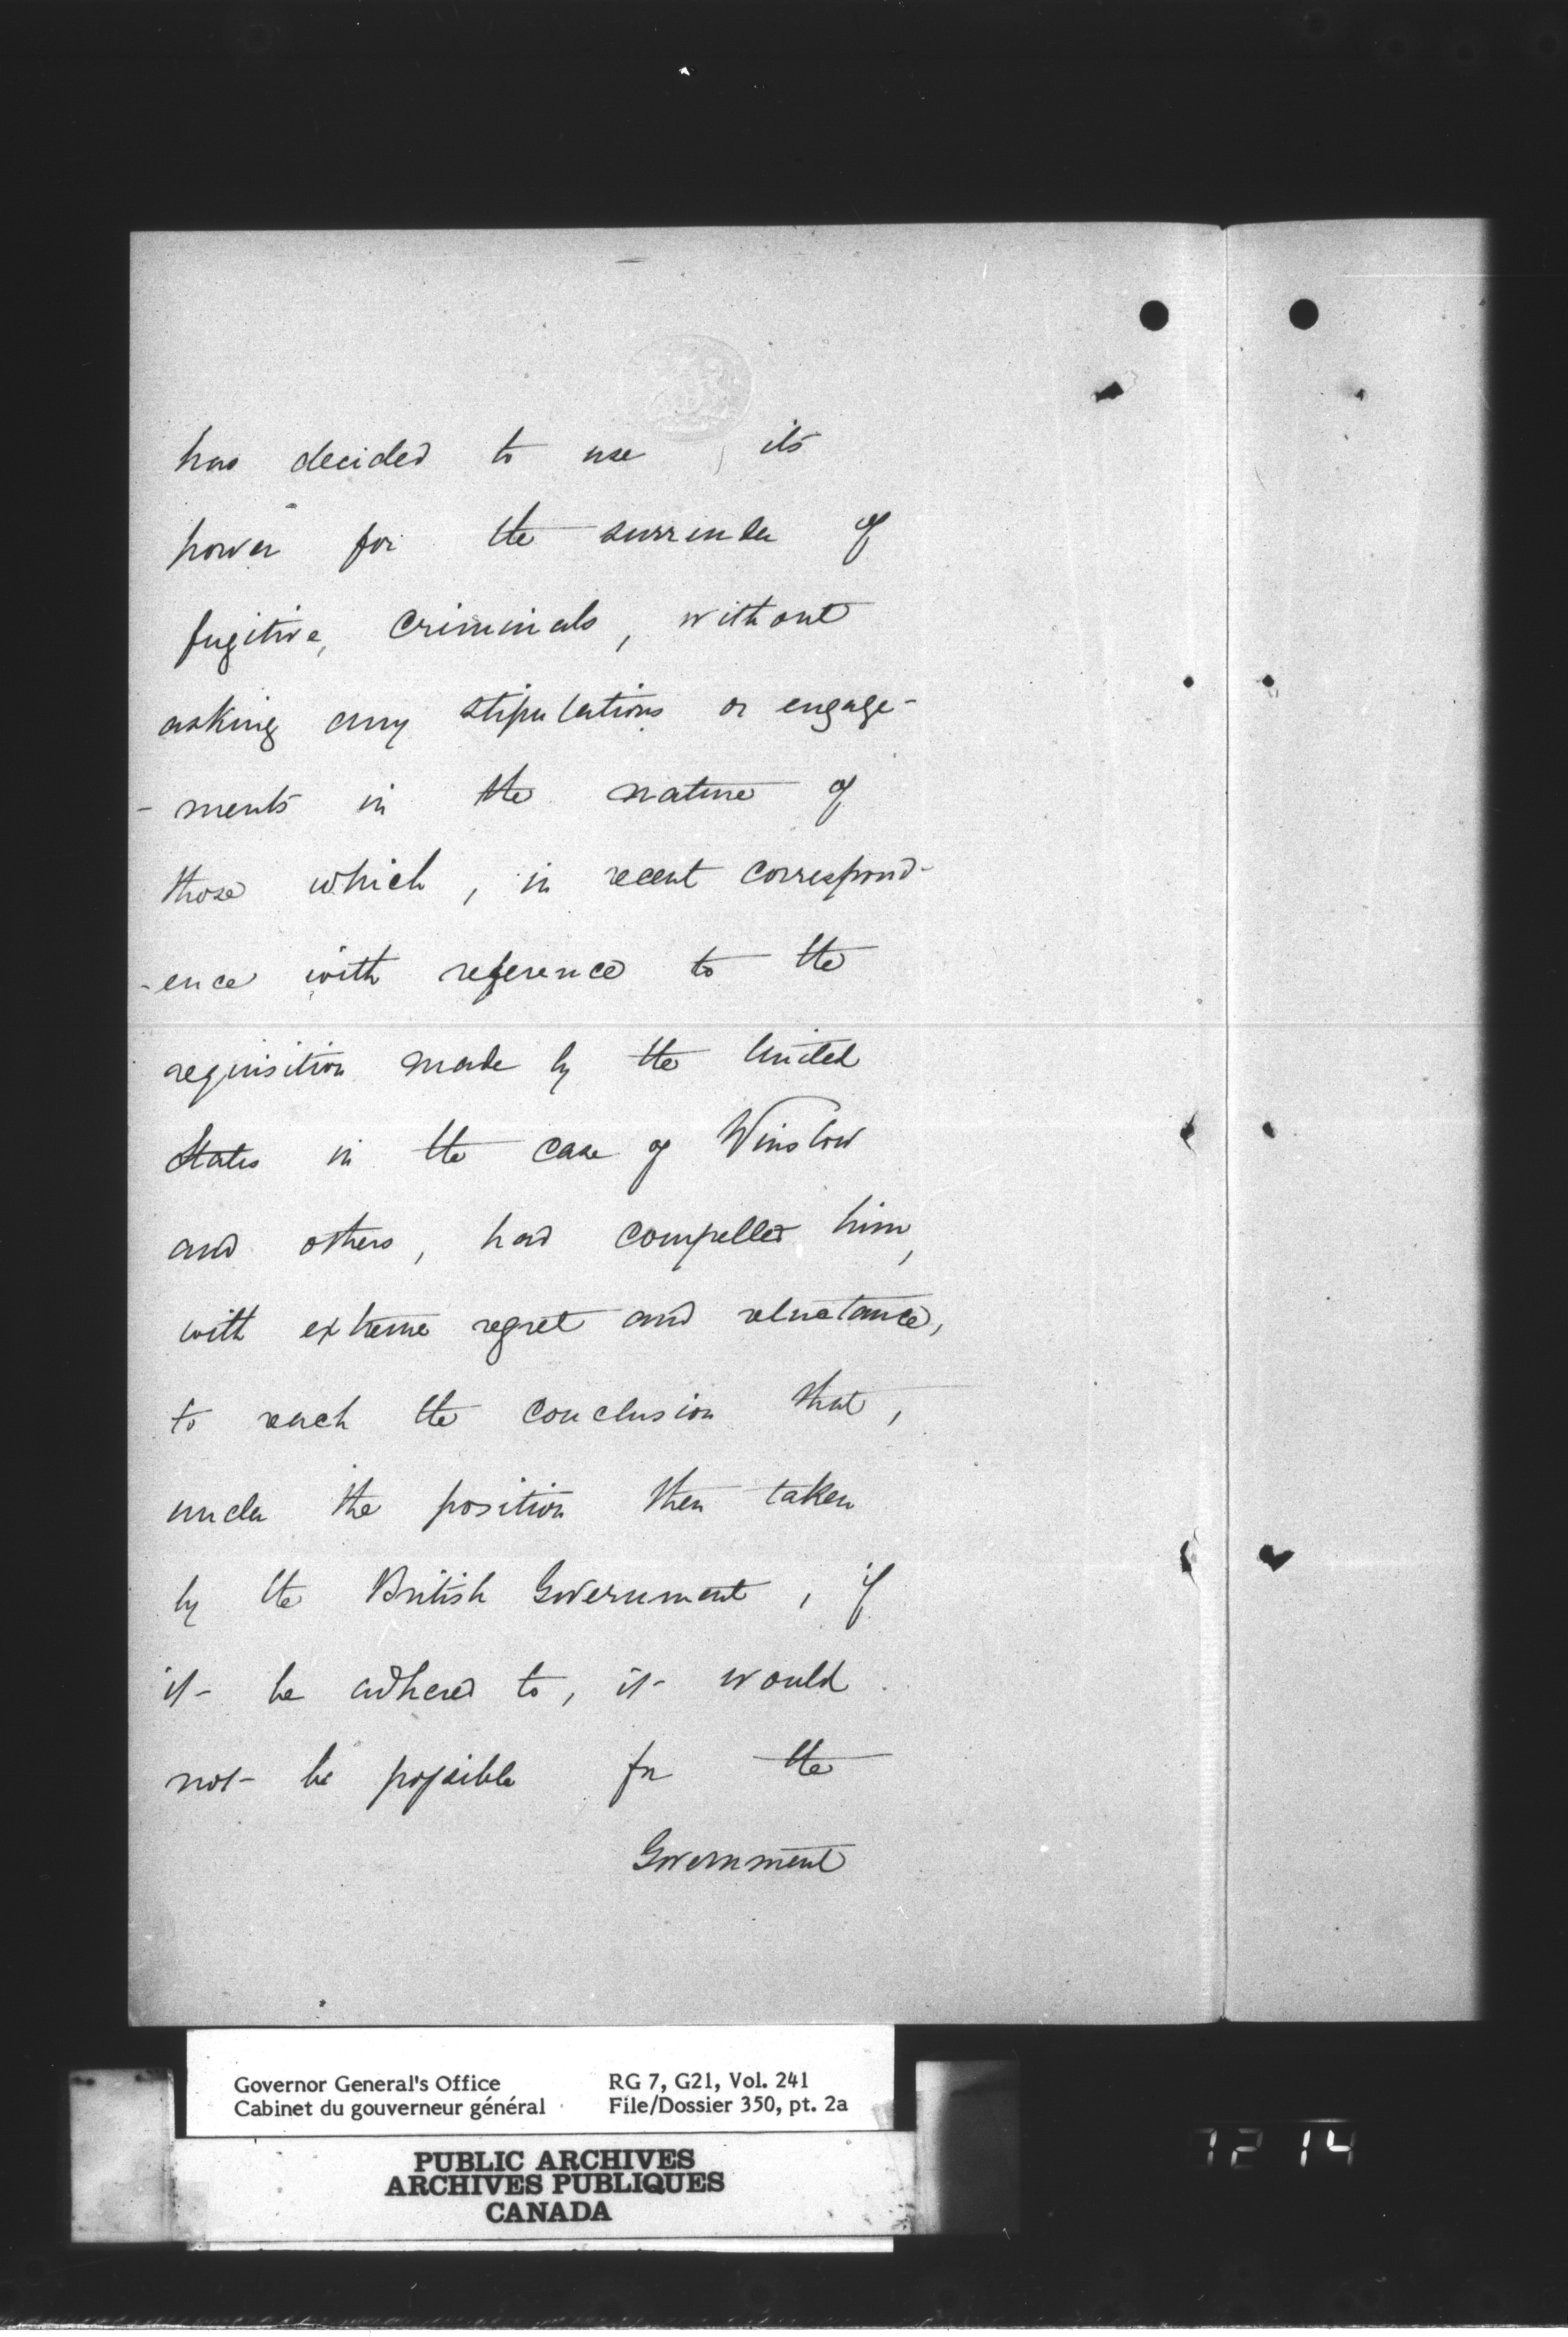 has decided to use its
power for the surrender of
fugitive, criminals, without
asking any stipulations or engage-
-ments in the nature of
those which, in recent correspond-
-ence with reference to the
requisition made by the United
States in the case of Winslow
and others, had compelled him,
with extreme regret and reluctance,
to reach the conclusion that,
under the position then taken
by the British Government, if
it be adhered to, it would
not be possible for the
Government
Governor General's Office RG 7, G21, Vol. 241
Cabinet du gouverneur général File/Dossier 350, pt. 2a
PUBLIC ARCHIVES
ARCHIVES PUBLIQUES
CANADA
1214